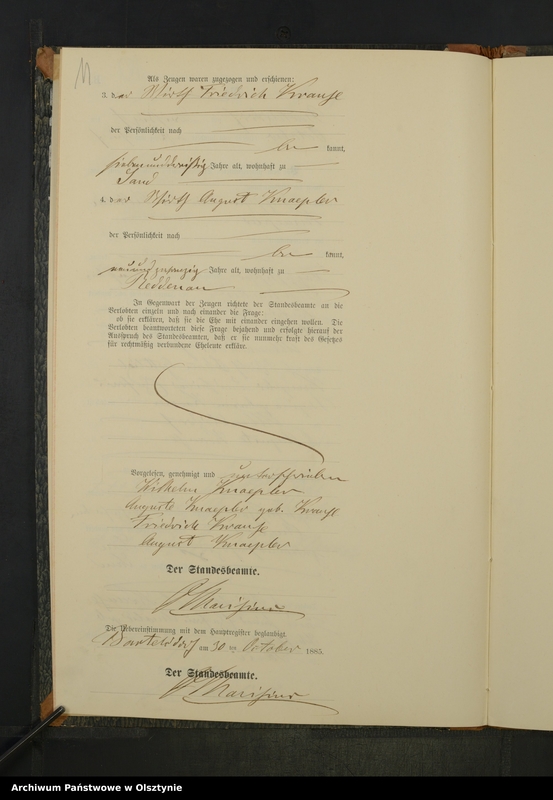 11
Als Zeugen waren zugezogen und erschienen:
3. der Wirth Friedrich Krause
der Persönlichkeit nach
be kannt,
siebenunddreißig Jahre alt, wohnhaft zu
Sand
4. der Wirth August Knaepler
der Persönlichkeit nach
be kannt,
neunundzwanzig Jahre alt, wohnhaft zu
Reddenau
In Gegenwart der Zeugen richtete der Standesbeamte an die
Verlobten einzeln und nach einander die Frage:
ob sie erklären, daß sie die Ehe mit einander eingehen wollen. Die
Verlobten beantworteten diese Frage bejahend und erfolgte hierauf der
Ausspruch des Standesbeamten, daß er sie nunmehr kraft des Gesetzes
für rechtmäßig verbundene Eheleute erkläre.
Vorgelesen, genehmigt und unterschrieben
Wilhelm Knaepler
Auguste Knaepler geb. Krause
Friedrich Krause
August Knaepler
Der Standesbeamte.
Die Uebereinstimmung mit dem Hauptregister beglaubigt
am 30 ten October 1885.
Der Standesbeamte.
Archiwum Państwowe w Olsztynie